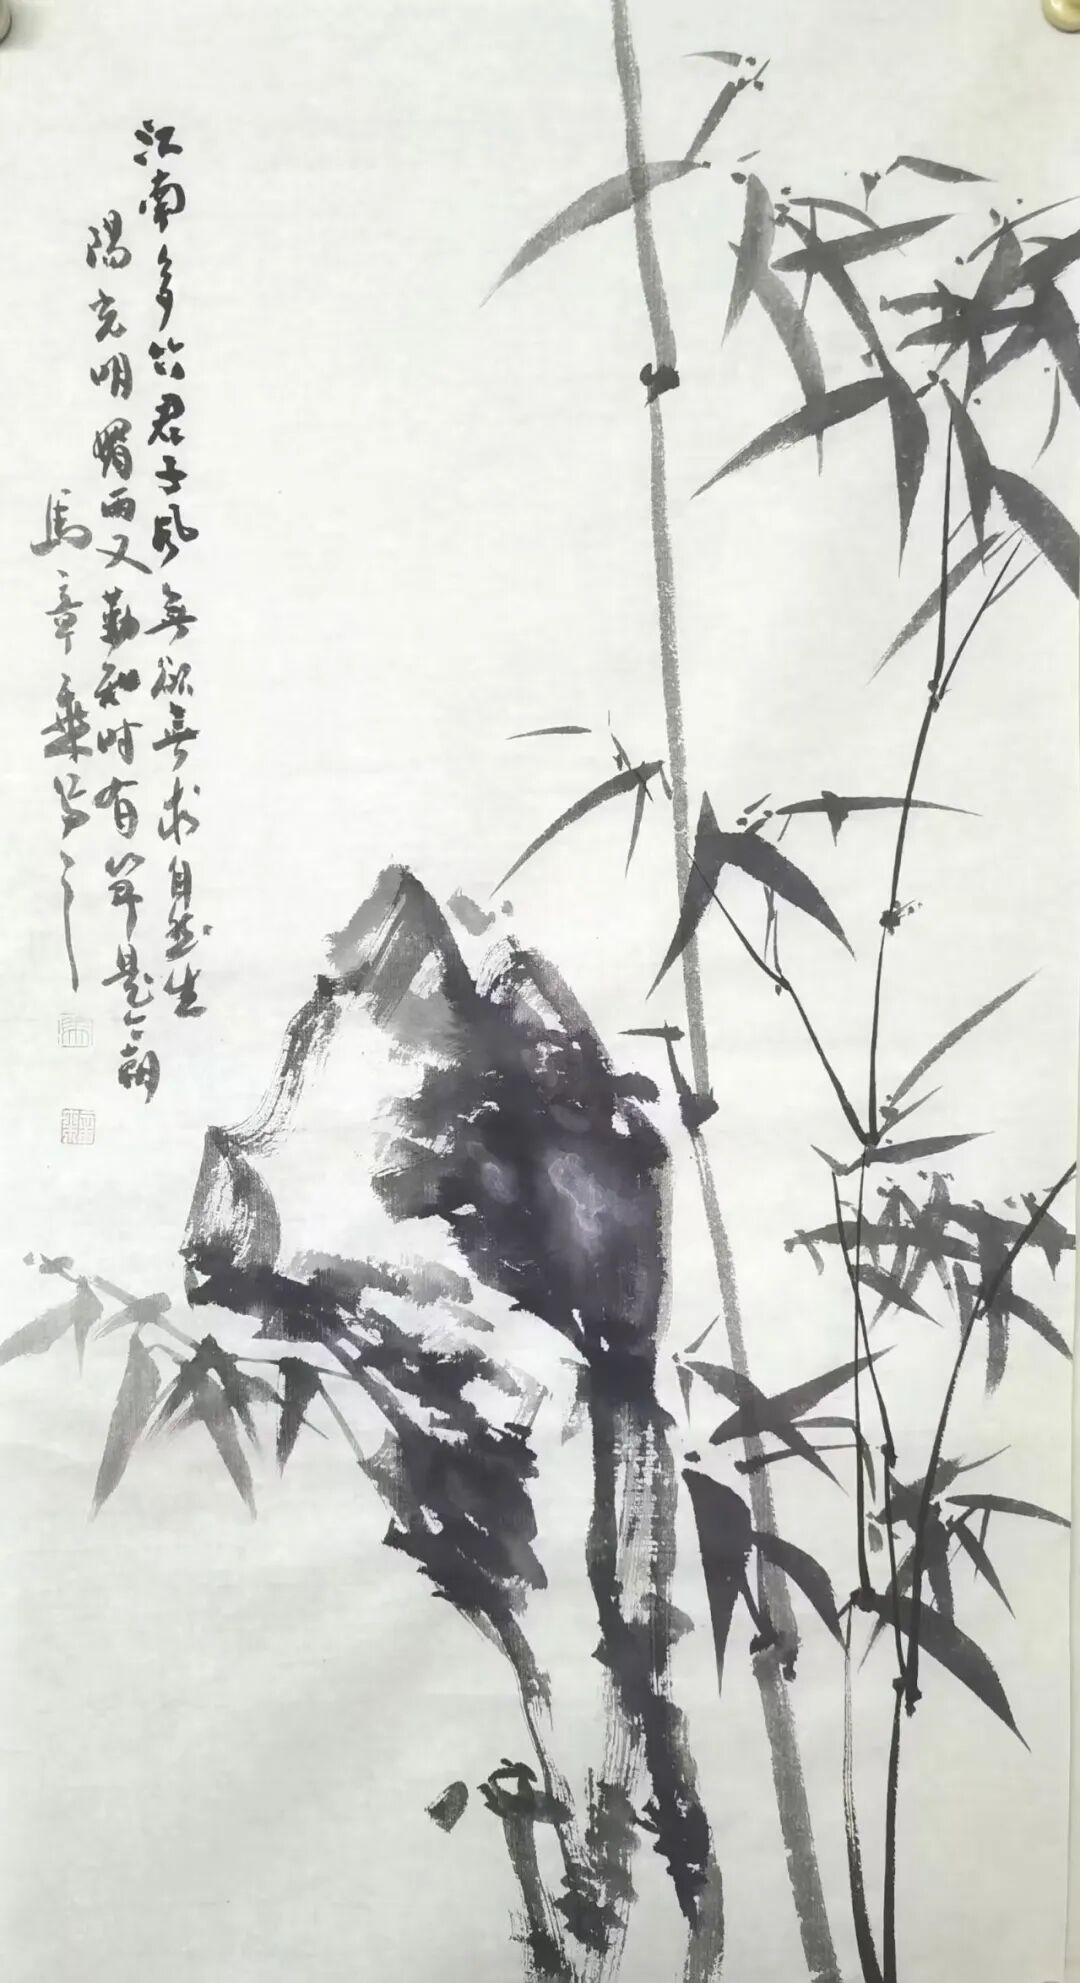 江南多竹君子風無欲無求自然生
陽光明媚雨又勤知時有節是今朝
馬章乘写之